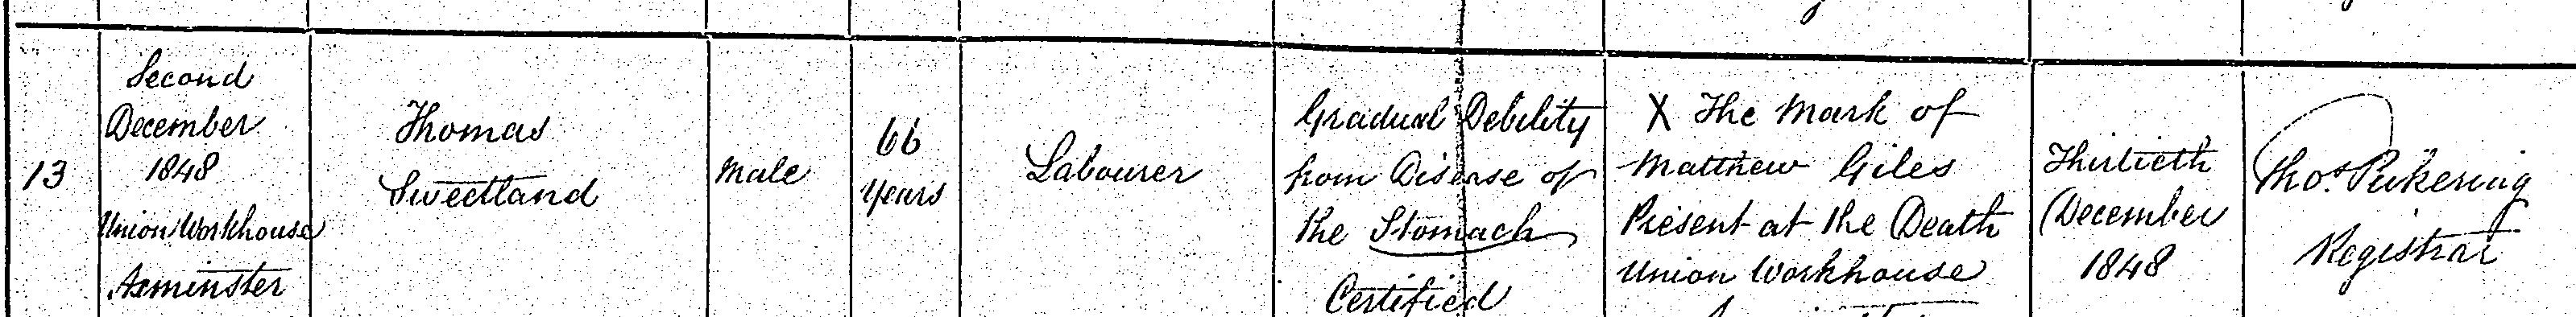 13
Second
December
1848
Union Workhouse
Axminster
Thomas
Sweetland
Male
66
Years
Labourer
Gradual Debility
from Disease of
the Stomach
Certified
X The Mark of
Matthew Giles
Present at the Death
Union Workhouse
Thirtieth
December
1848
Thos. Pickering
Registrar